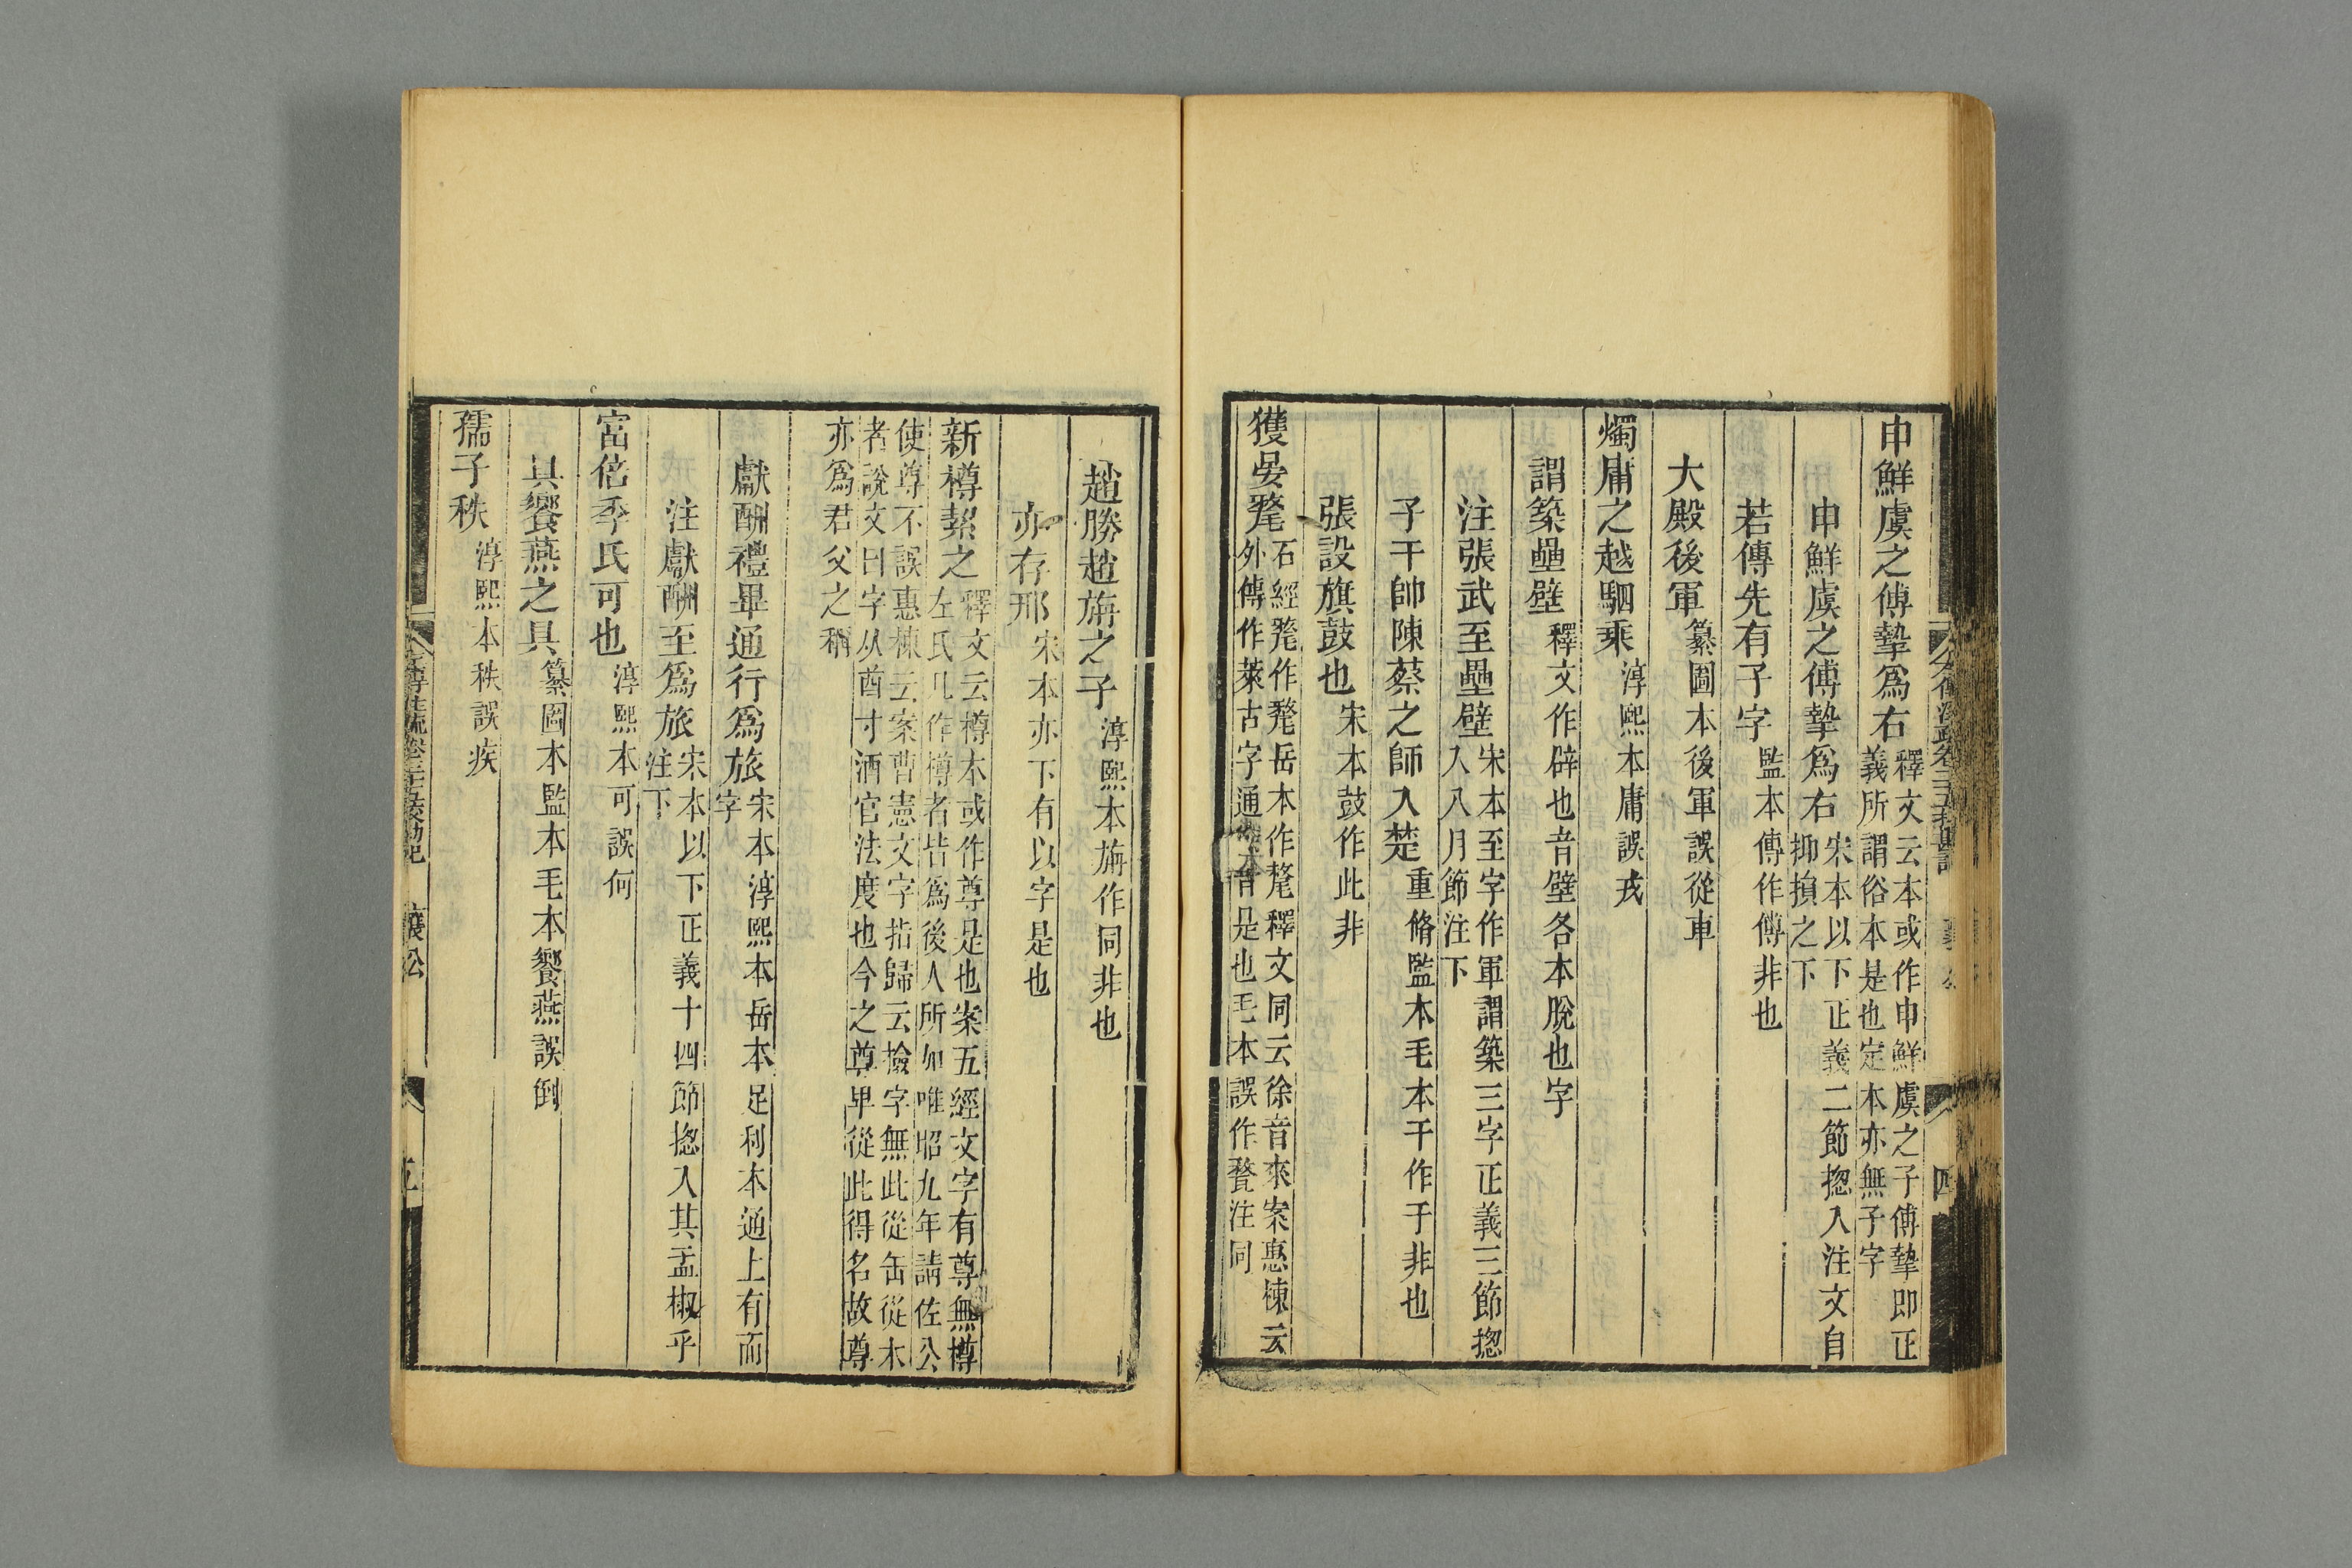 申鮮虞之傅摯爲右釋文云本或作申鮮虞之子傅摯即正
義所謂俗本是也定本亦無子字
申鮮虞之傅摯爲右宋本以下正義二節揔入注文自
抑損之下
若傳先有子字監本傳作傅非也
大殿後軍纂圖本後軍誤從車
燭庸之越駟乘淳熙本庸誤戎
謂築壘壁釋文作辟也音壁各本脫也字
注張武至壘壁宋本至字作軍謂築三字正義三節揔
入八月節注下
子干帥陳蔡之師入楚重脩監本毛本干作于非也
張設旗鼓也宋本鼓作此非
獲晏氂石經氂作氂岳本作氂釋文同云徐音來案惠棟云
外傳作萊古字通
音是也毛本誤作嫠注同
趙勝趙旃之子淳熙本旃作同非也
亦存邢宋本亦下有以字是也
新樽絜之釋文云樽本或作尊是也案五經文字有尊無樽
左氏凡作樽者皆爲後人所加唯昭九年請佐公
使尊不誤惠棟云案曹憲文字指歸云檢字無此從缶從木
者說文曰字从酋寸酒官法度也今之尊卑從此得名故尊
亦爲君父之稱
獻酬禮畢通行爲旅宋本淳熙本岳本足利本通上有而
字
注獻酬至爲旅宋本以下正義十四節揔入其孟椒乎
注下
富倍季氏可也淳熙本可誤何
具饗燕之具纂圖本監本毛本饗燕誤倒
孺子秩淳熙本秩誤疾
襄公